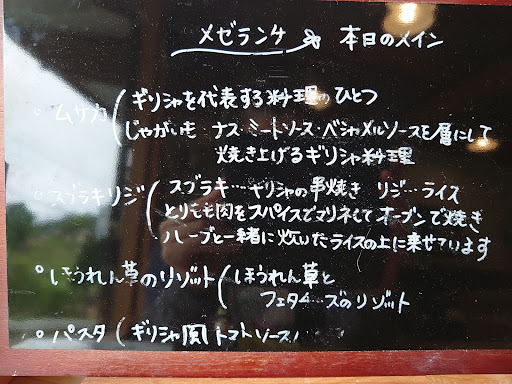 メゼランチ 本日のメイン
。ムサカ(ギリシャを代表する料理のひとつ
じゃがいも ナス・ミートソース・ベシャメルソースを層にして
焼き上げるギリシャ料理
。スブラキリジ(スブラキ…ギリシャの串焼き リジ…ライス
とりもも肉をスパイスでマリネしてオーブンで焼き
ハーブと一緒に炊いたライスの上に乗せています
。ほうれん草のリゾット(ほうれん草と
フェタチーズのリゾット
。パスタ(ギリシャ風トマトソース)